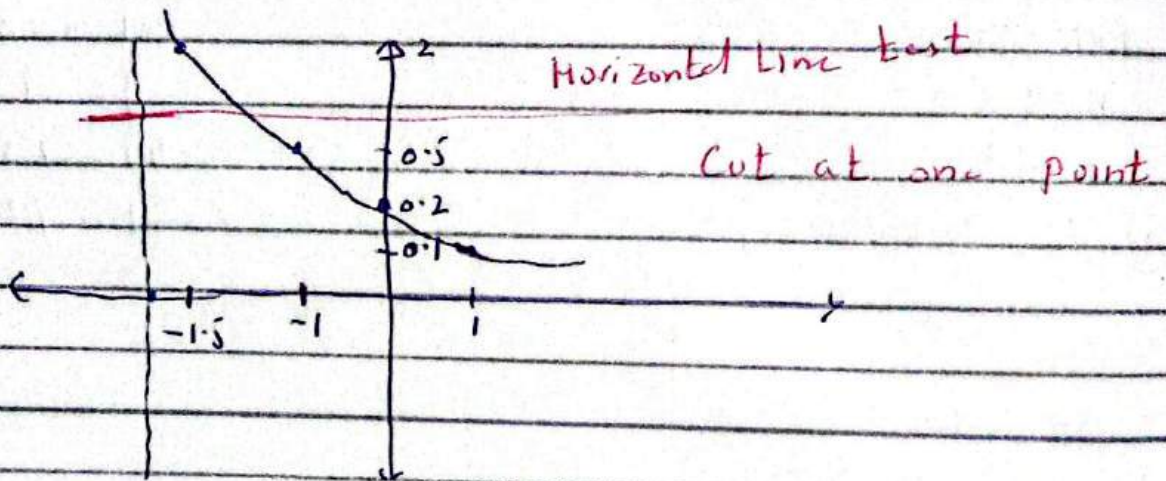 2
Horizontal Line test
0.5
Cut at one point
0.2
0.1
-1.5 -1 1